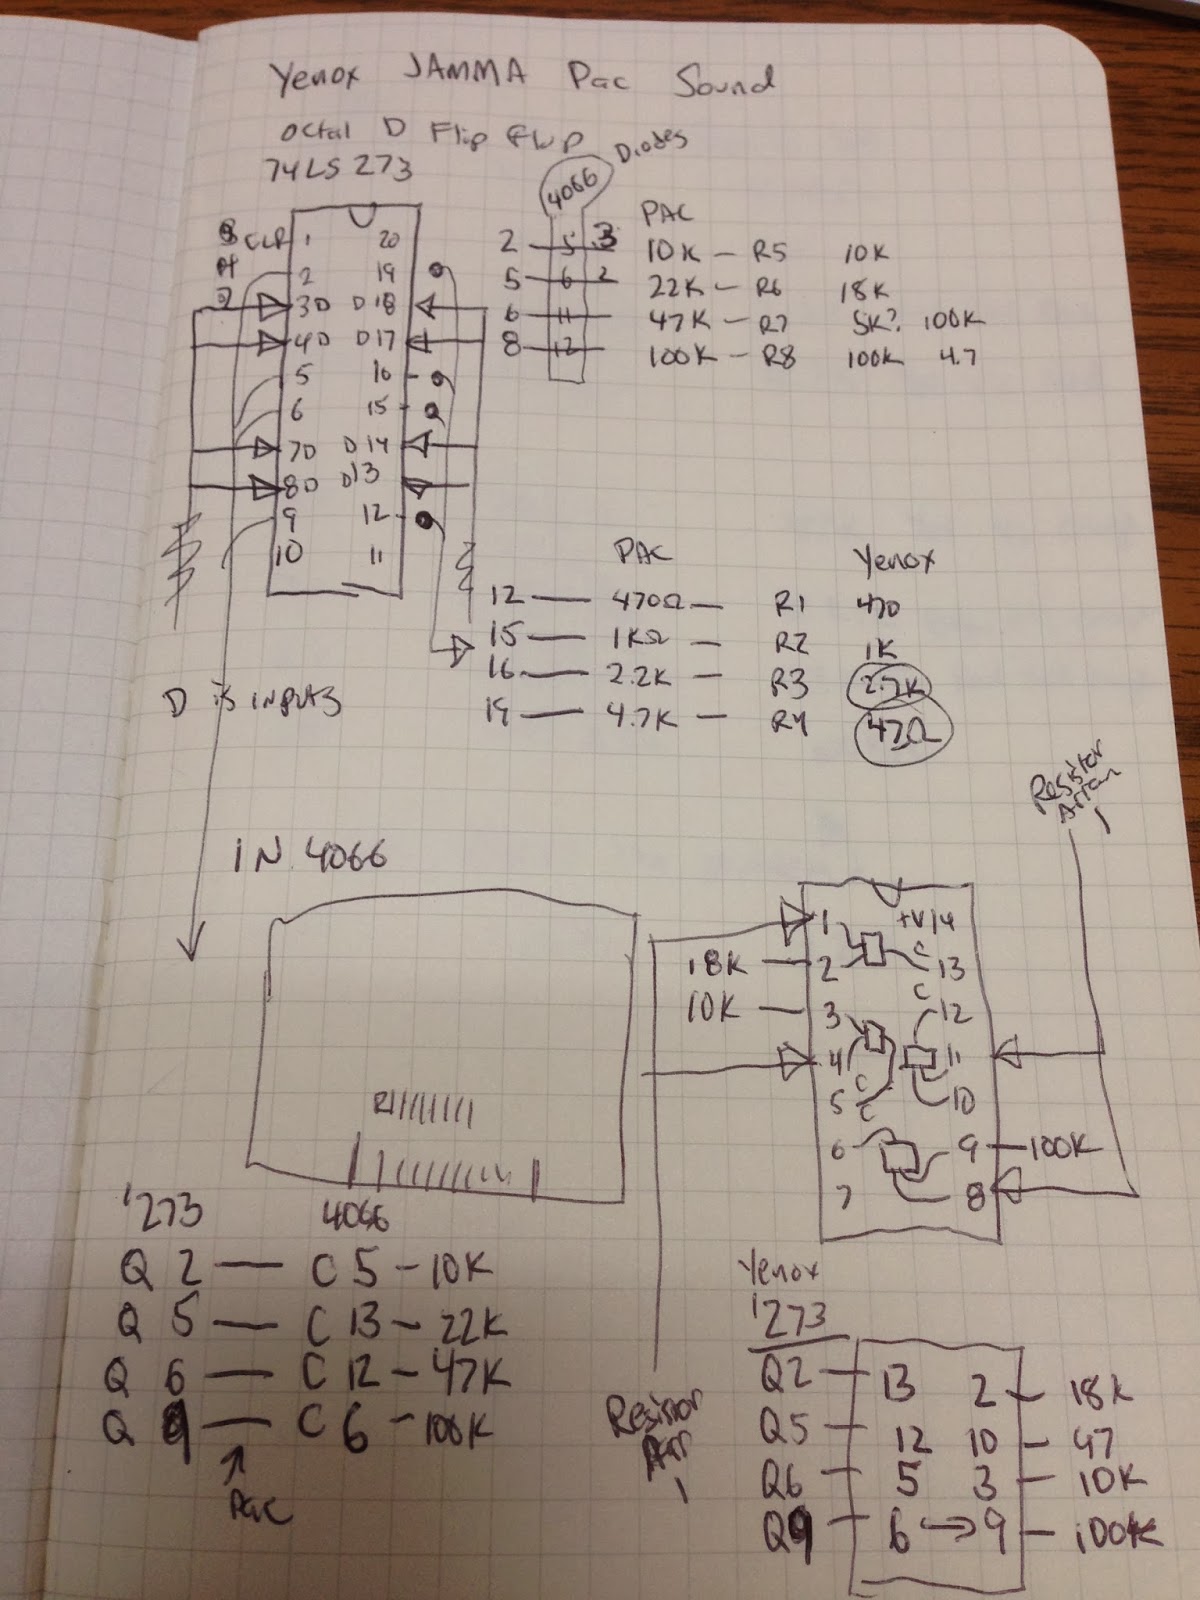 Yenox JAMMA Pac Sound
Octal D Flip Flop
74LS273
Diodes
4066
CLR 1 20
2 19
3D D 18
4D D 17
5 16
6 15
7D D 14
8D D 13
9 12
10 11
PAC
2 5 3 10K - R5 10K
5 6 2 22K - R6 18K
6 11 47K - R7 5K? 100K
8 12 100K - R8 100K 4.7
PAC Yenox
12 — 470Ω — R1 470
15 — 1KΩ — R2 1K
16 — 2.2K — R3 2.7K
19 — 4.7K — R4 47Ω
D is inputs
Resistor
Array
IN 4066
1 +V 14
18K 2 C 13
10K 3 C 12
4 11
5 C 10
6 9 100K
7 8
R1
'273 4066
Q 2 — C 5 - 10K
Q 5 — C 13 - 22K
Q 6 — C 12 - 47K
Q 9 — C 6 - 100K
Pac
Resistor
Arr
Yenox
'273
Q2 13 2 18K
Q5 12 10 47
Q6 5 3 10K
Q9 6 → 9 100K